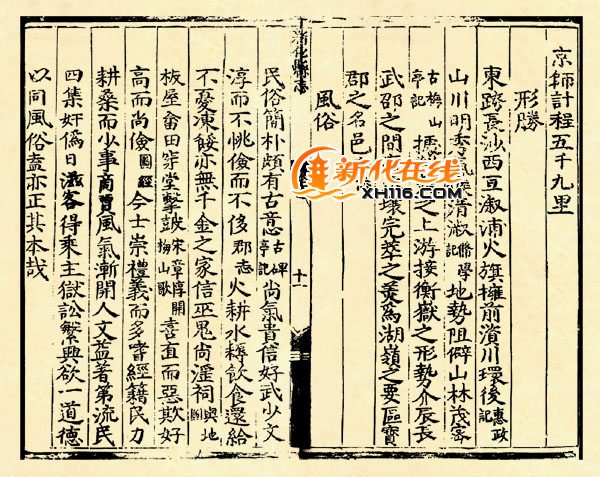 京師計程五千九里
形勝
東跨長沙西亘溆浦火旗擁前濱川環後惠政記
山川明秀清淑修學記地勢阻僻山林茂密
古梅山亭記之上游接衡嶽之形勢介辰長
武邵之間壤完萃之美為湖嶺之要區寶
郡之名邑
風俗
新化縣志
十一
民俗簡朴頗有古意古碑亭記尚氣貴信好武少文
淳而不佻儉而不侈郡志火耕水耨飲食還給
不憂凍餒亦無千金之家信巫鬼尚淫祠與地
板屋畬田穿堂擊鼓宋章惇開梅山歌喜直而惡欺好
高而尚儉圖經今士崇禮義而多嗜經籍民力
耕桑而少事商賈風氣漸開人文益著第流民
四集奸僞日滋客得乘主獄訟繁興欲一道德
以同風俗盍亦正其本哉
新化在线
XH116.COM